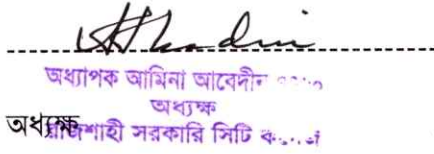 অধ্যাপক আমিনা আবেদীন
অধ্যক্ষ
অধ্যক্ষ
রাজশাহী সরকারি সিটি